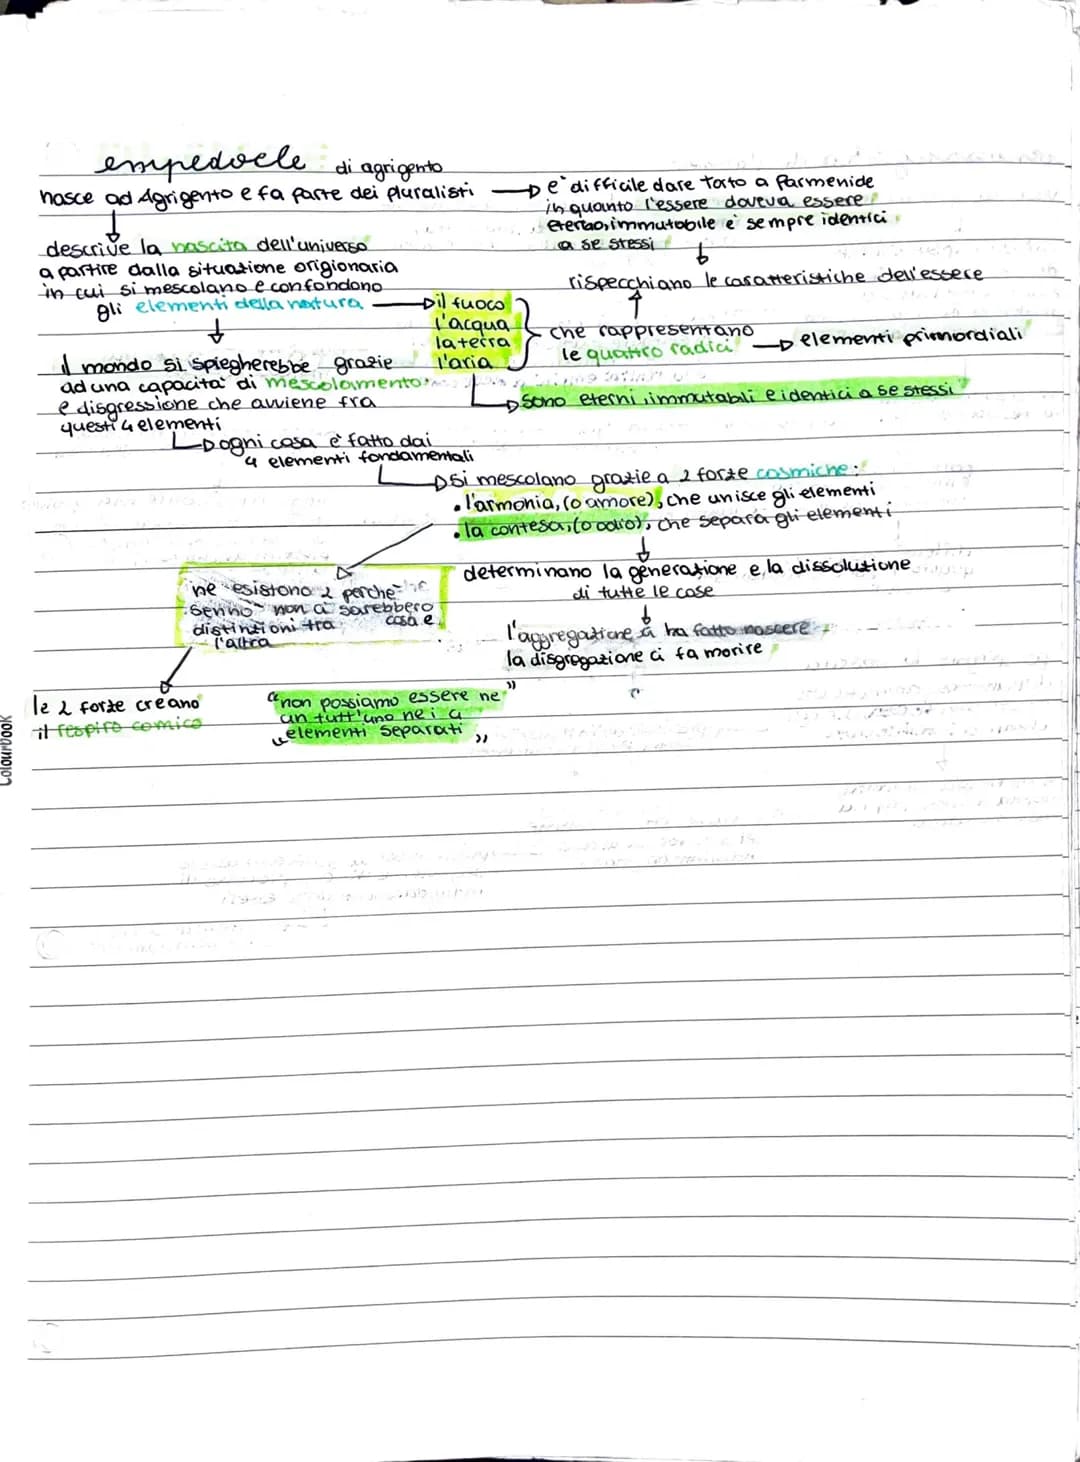 empedocle di agrigento
nasce ad Agrigento e fa parte dei pluralisti
è difficile dare torto a Parmenide
in quanto l'essere doveva essere
eterno, immutabile e sempre identici
a se stessi
rispecchiano le caratteristiche dell'essere
descrive la nascita dell'universo
a partire dalla situazione origionaria
in cui si mescolano e confondono
gli elementi della natura
il fuoco
l'acqua
la terra
l'aria
che rappresentano
le quattro radici
elementi primordiali
sono eterni, immutabili e identici a se stessi
il mondo si spiegherebbe grazie
ad una capacità di mescolamento
e disgressione che avviene fra
questi 4 elementi
ogni cosa è fatto dai
4 elementi fondamentali
si mescolano grazie a 2 forze cosmiche:
• l'armonia, (o amore), che unisce gli elementi
• la contesa, (o odio), che separa gli elementi
determinano la generazione e la dissoluzione
di tutte le cose
l'aggregazione ci ha fatto nascere
la disgregazione ci fa morire
ne esistono 2 perché
sennò non ci sarebbero
distinzioni tra cosa e
l'altra
le 2 forze creano
il respiro comico
"non possiamo essere ne"
un tutt'uno ne i 4
"elementi separati"
Colourbook